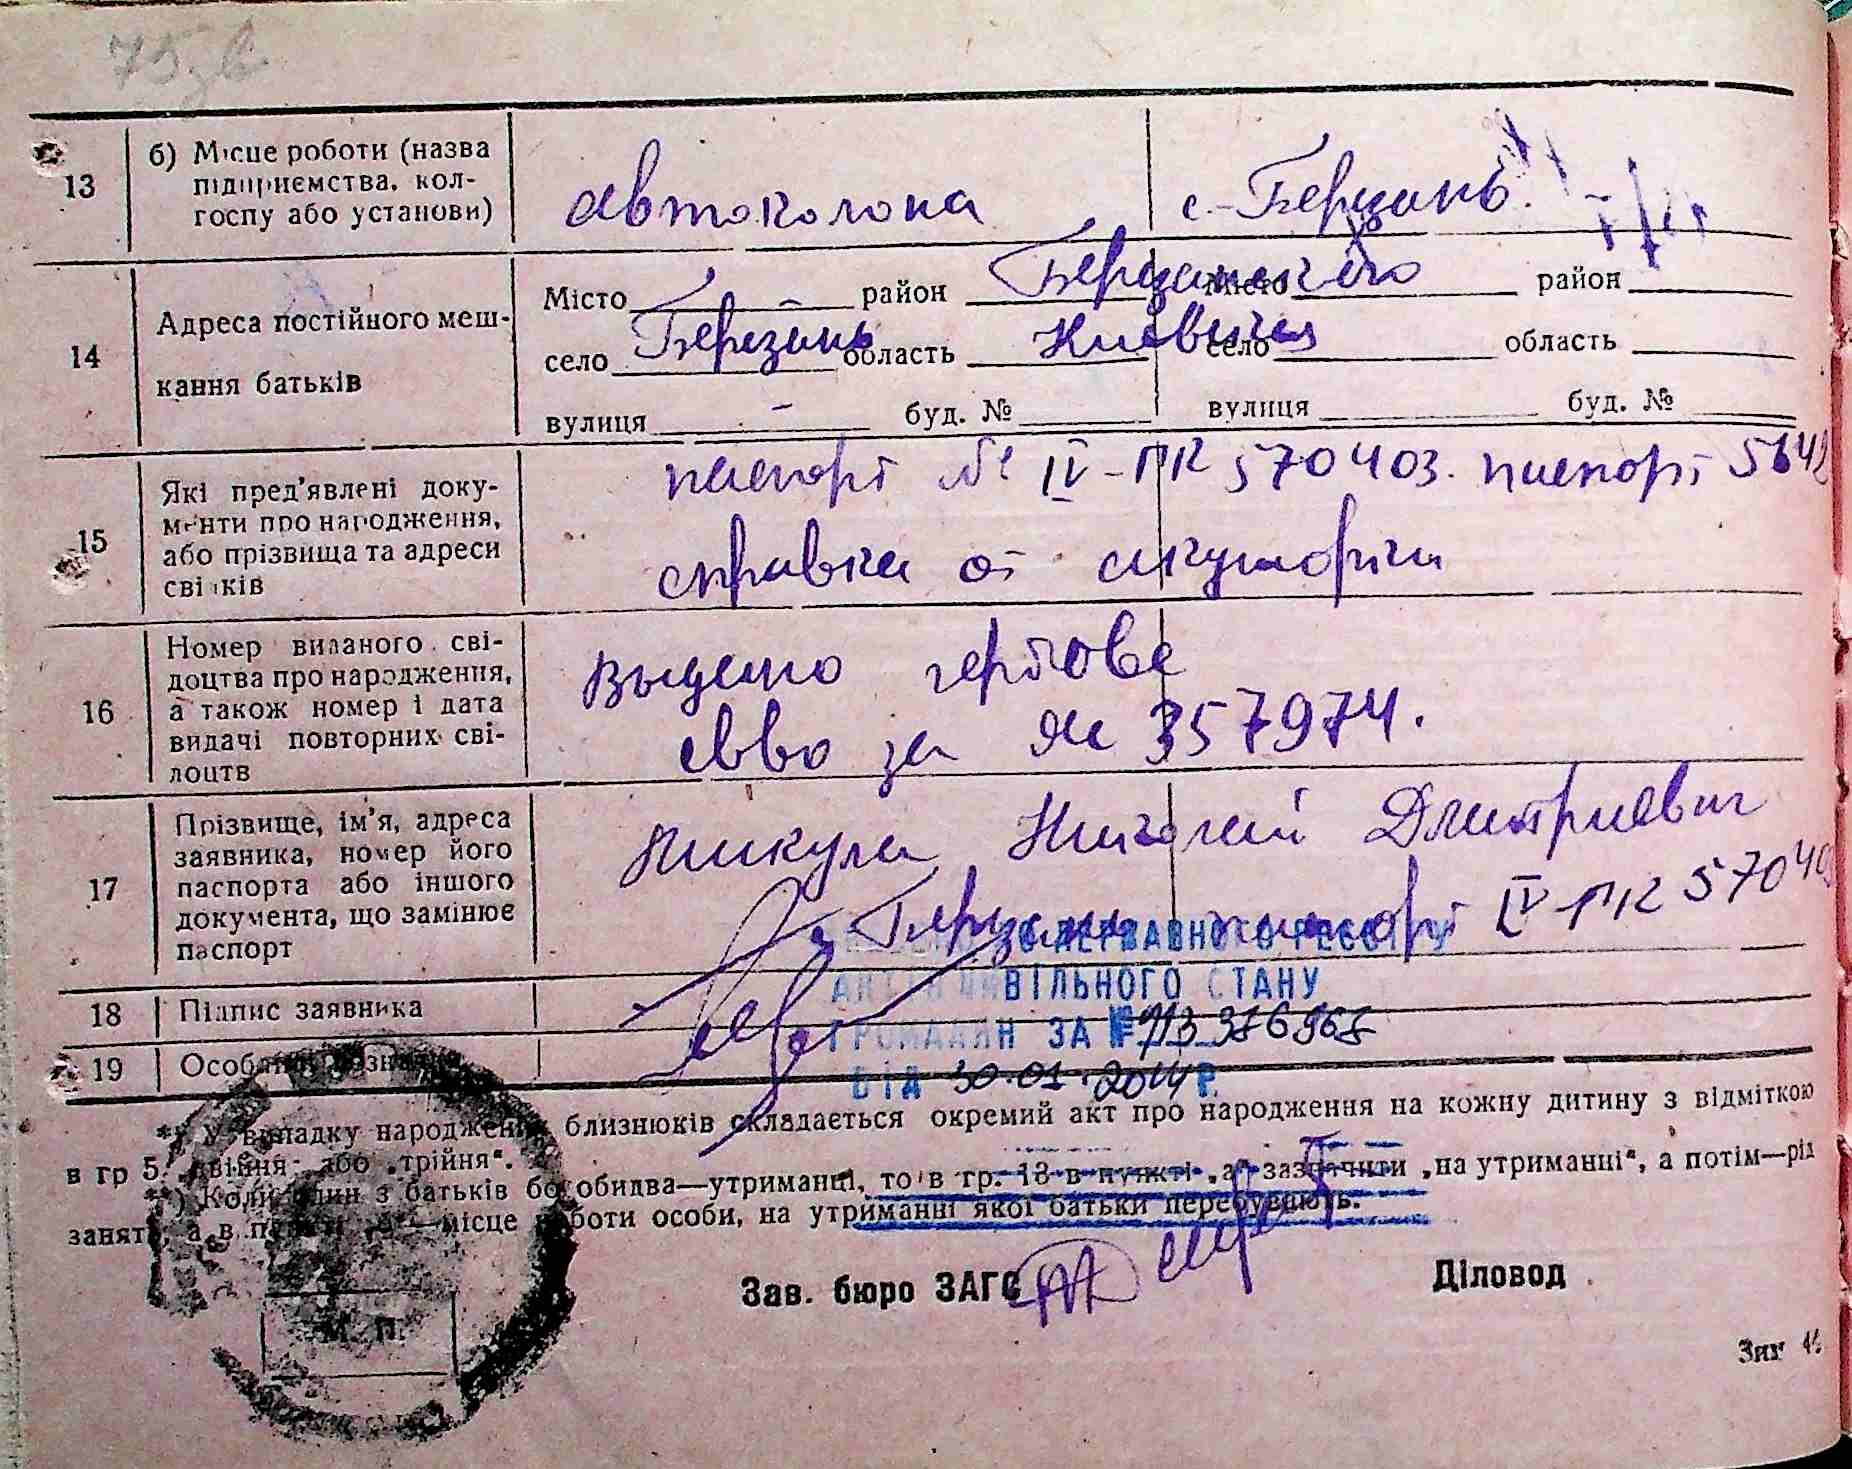 75зв
13 б) Місце роботи (назва підприємства, колгоспу або установи)
автоколона с. Березань
14 Адреса постійного мешкання батьків
Місто район Місто район
село Березань область Киевская село область
вулиця - буд. № вулиця буд. №
15 Які пред'явлені документи про народження, або прізвища та адреси свідків
паспорт № IV-ПК 570403. паспорт
справка от
16 Номер виданого свідоцтва про народження, а також номер і дата видачі повторних свідоцтв
Выдано гербове
св-во за № 357974.
17 Прізвище, ім'я, адреса заявника, номер його паспорта або іншого документа, що замінює паспорт
Пикула Николай Дмитриевич
Березань паспорт IV-ПК 570403
ДЕРЖАВНОГО РЕЄСТРУ
АКТІВ ЦИВІЛЬНОГО СТАНУ
18 Підпис заявника
ГРОМАДЯН ЗА №
19 Особливі відзнаки
ВІД 30.01.2014 Р.
*) У випадку народження близнюків складається окремий акт про народження на кожну дитину з відміткою
в гр 5. „двійня“ або „трійня“.
**) Коли один з батьків бо обидва—утриманці, то в гр. 13 в пункті „а“ зазначити „на утриманні“, а потім—рід
занять, а в пункті — місце роботи особи, на утриманні якої батьки перебувають.
Зав. бюро ЗАГС Діловод
М. П.